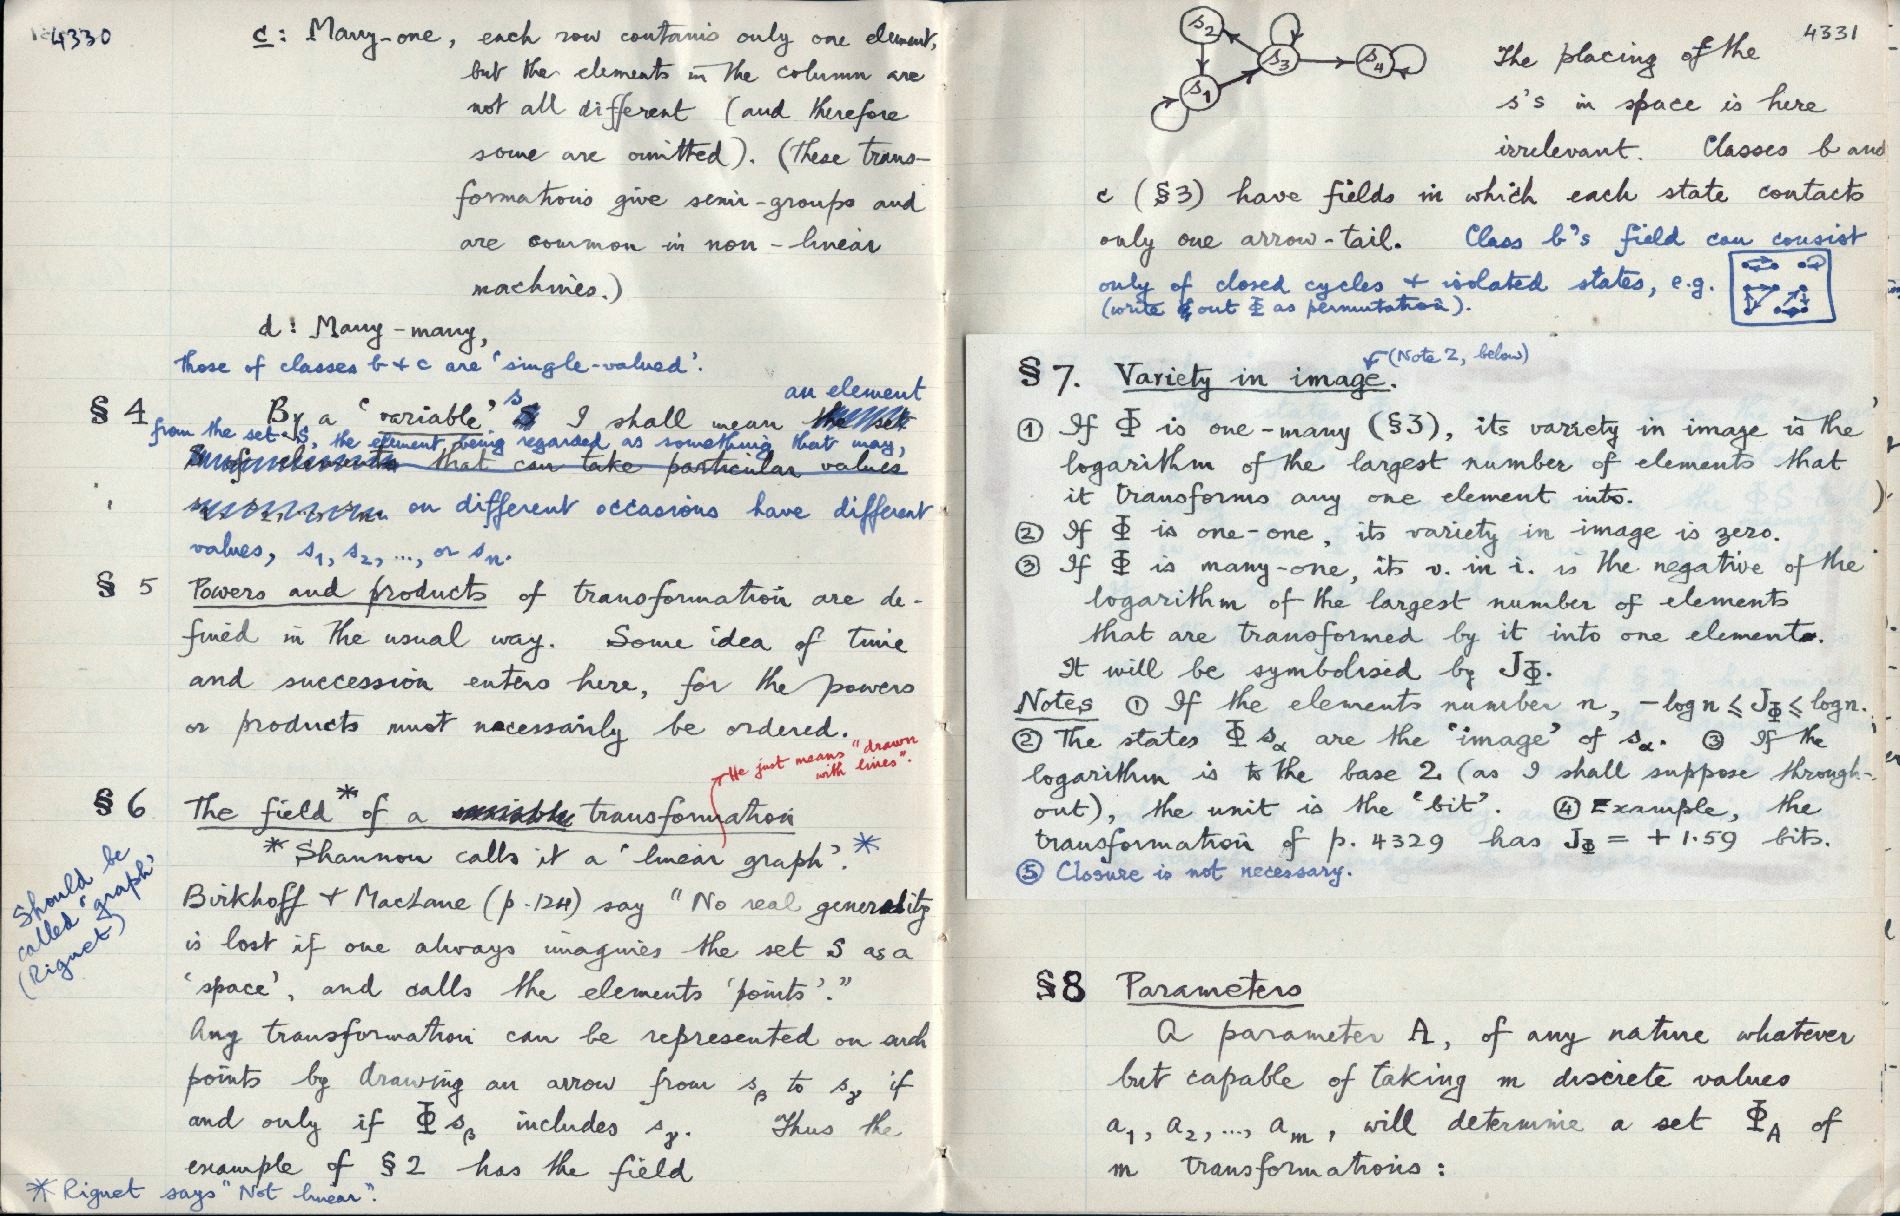 4330
c: Many-one, each row contains only one element,
but the elements in the column are
not all different (and therefore
some are omitted). (These trans-
formations give semi-groups and
are common in non-linear
machines.)
d: Many-many,
Those of classes b + c are 'single-valued'.
§ 4 By a 'variable' s I shall mean an element
from the set S, the element being regarded as something that may,
that can take particular values
on different occasions have different
values, s1, s2, ..., or sn.
§ 5 Powers and products of transformation are de-
fined in the usual way. Some idea of time
and succession enters here, for the powers
or products must necessarily be ordered.
He just means "drawn
with lines".
§ 6 The field* of a variable transformation
*Shannon calls it a 'linear graph'.*
Should be
called 'graph'
(Riguet)
Birkhoff + MacLane (p. 124) say "No real generality
is lost if one always imagines the set S as a
'space', and calls the elements 'points'."
Any transformation can be represented on such
points by drawing an arrow from sβ to sγ if
and only if Φsβ includes sγ. Thus the
example of §2 has the field
* Riguet says "Not linear".
4331
s2
s3
s4
s1
The placing of the
s's in space is here
irrelevant. Classes b and
c (§3) have fields in which each state contacts
only one arrow-tail. Class b's field can consist
only of closed cycles + isolated states, e.g.
(write out Φ as permutation).
§7. Variety in image. (Note 2, below)
① If Φ is one-many (§3), its variety in image is the
logarithm of the largest number of elements that
it transforms any one element into.
② If Φ is one-one, its variety in image is zero.
③ If Φ is many-one, its v. in i. is the negative of the
logarithm of the largest number of elements
that are transformed by it into one element.
It will be symbolised by JΦ.
Notes ① If the elements number n, -log n ≤ JΦ ≤ log n.
② The states Φsα are the 'image' of sα. ③ If the
logarithm is to the base 2 (as I shall suppose through-
out), the unit is the 'bit'. ④ Example, the
transformation of p. 4329 has JΦ = + 1.59 bits.
⑤ Closure is not necessary.
§8 Parameters
A parameter A, of any nature whatever
but capable of taking m discrete values
a1, a2, ..., am, will determine a set ΦA of
m transformations: